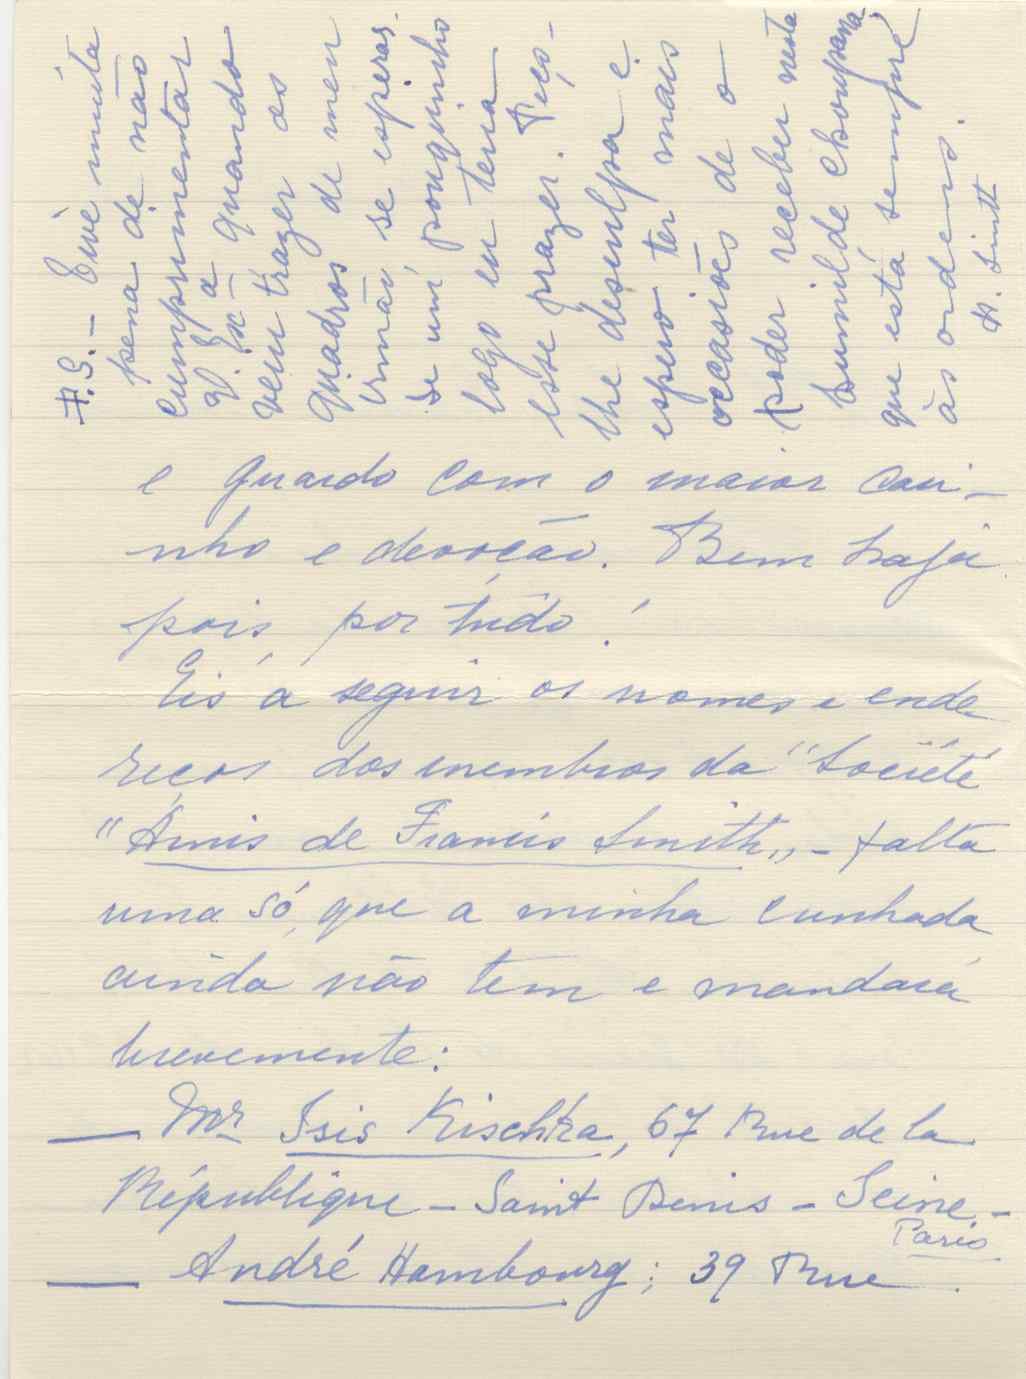 P.S. — Tive muita
pena de não
cumprimentar
V. Exª quando
veiu trazer os
quadros de meu
irmão, se esperas-
se um pouquinho
logo eu teria
esse prazer. Peço-
lhe desculpa e
espero ter mais
occasiões de o
poder receber nesta
humilde choupana,
que está sempre
às ordens.
P. Smith
e guardo com o maior cari-
nho e devoção. Bem haja
pois, por tudo!
Eis a seguir os nomes e ende-
reços dos membros da "Société
"Amis de Francis Smith" - falta
uma só, que a minha cunhada
ainda não tem e mandará
brevemente:
— Mr Isis Kischka, 67 Rue de la
République - Saint Denis - Seine -
Paris
— André Hambourg; 39 Rue